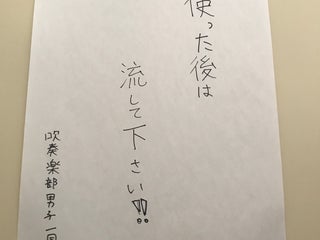 使った後は
流して下さい!!
吹奏楽部男子一同